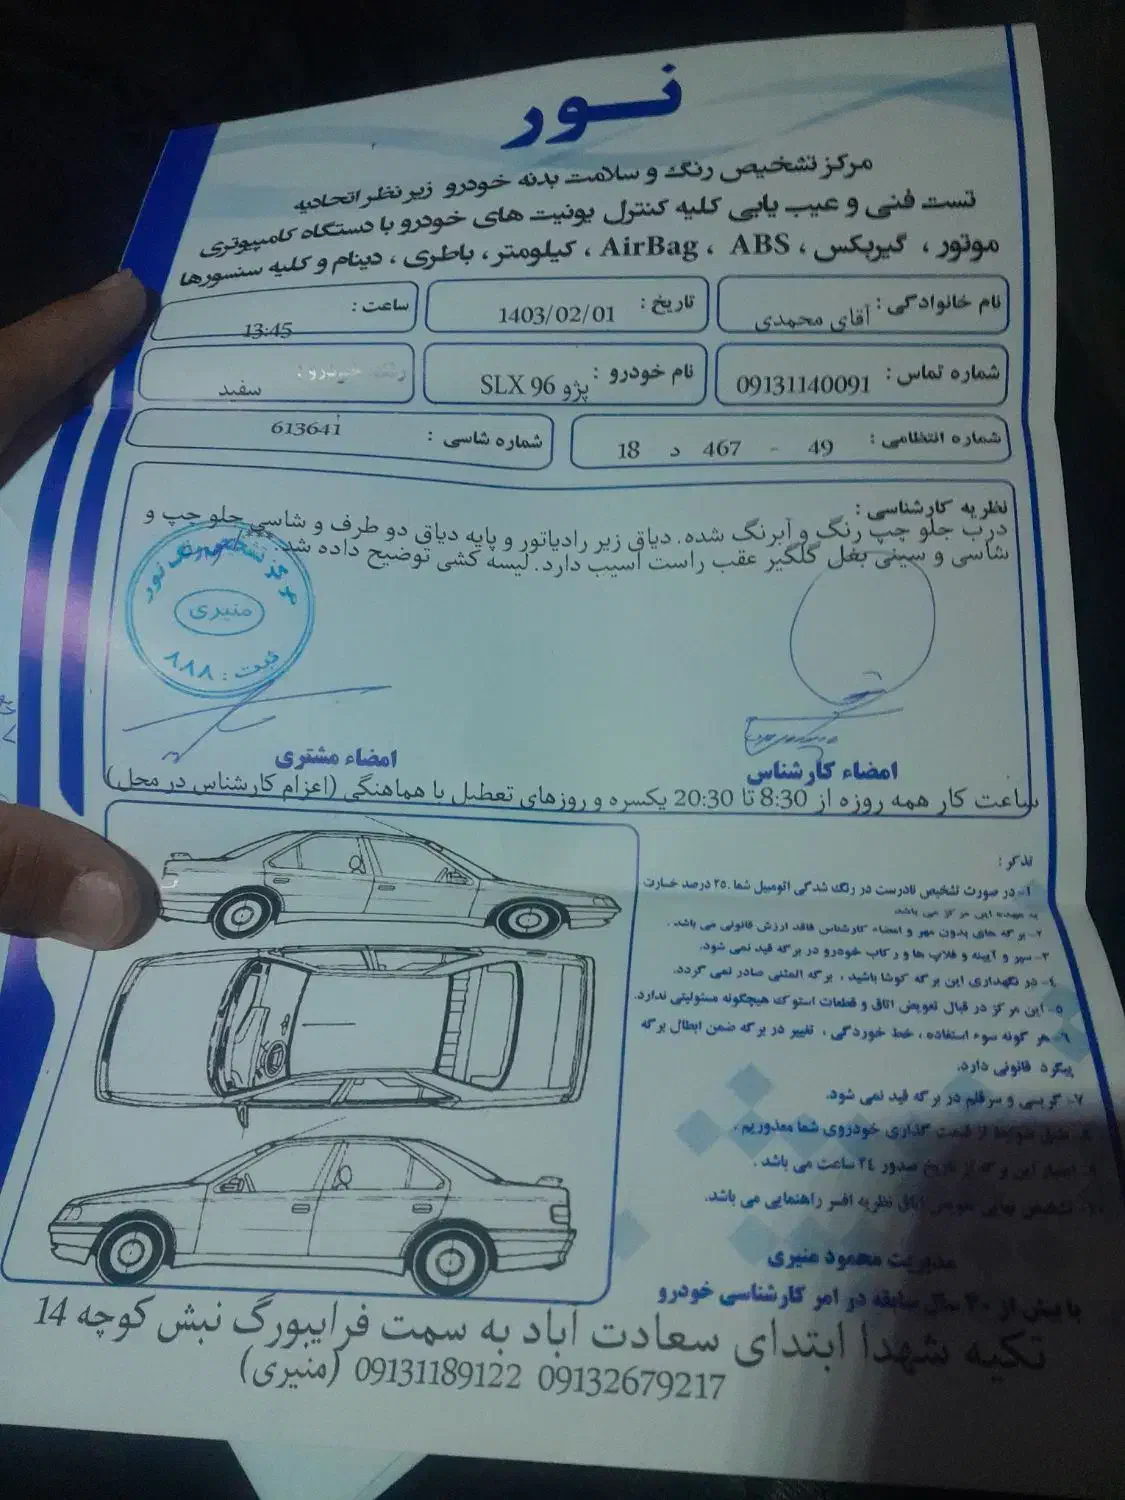 نور
مرکز تشخیص رنگ و سلامت بدنه خودرو زیر نظر اتحادیه
تست فنی و عیب یابی کلیه کنترل یونیت های خودرو با دستگاه کامپیوتری
موتور ، گیربکس ، AirBag ، ABS ، کیلومتر ، باطری ، دینام و کلیه سنسورها
نام خانوادگی : آقای محمدی
تاریخ : 1403/02/01
ساعت : 13:45
شماره تماس : 09131140091
نام خودرو : پژو SLX 96
رنگ خودرو : سفید
شماره انتظامی : 49 - 467 د 18
شماره شاسی : 613641
نظریه کارشناسی :
درب جلو چپ رنگ و آبرنگ شده. دیاق زیر رادیاتور و پایه دیاق دو طرف و شاسی جلو چپ و
شاسی و سینی بغل گلگیر عقب راست آسیب دارد. لیسه کشی توضیح داده شد.
مرکز تشخیص رنگ نور
منیری
ثبت : ۸۸۸
امضاء کارشناس
امضاء مشتری
ساعت کار همه روزه از 8:30 تا 20:30 یکسره و روزهای تعطیل با هماهنگی (اعزام کارشناس در محل)
تذکر :
۱- در صورت تشخیص نادرست در رنگ شدگی اتومبیل شما ۲۵ درصد خسارت
به عهده این مرکز می باشد.
۲- برگه های بدون مهر و امضاء کارشناس فاقد ارزش قانونی می باشد .
۳- سپر و آیینه و فلاپ ها و رکاب خودرو در برگه قید نمی شود.
۴- در نگهداری این برگه کوشا باشید ، برگه المثنی صادر نمی گردد.
۵- این مرکز در قبال تعویض اتاق و قطعات استوک هیچگونه مسئولیتی ندارد.
۶- هر گونه سوء استفاده ، خط خوردگی ، تغییر در برگه ضمن ابطال برگه
پیگرد قانونی دارد.
۷- گریسی و سرقلم در برگه قید نمی شود.
از قیمت گذاری خودروی شما معذوریم .
این برگه از تاریخ صدور ۲۴ ساعت می باشد .
۱۰- تشخیص نهایی تعویض اتاق نظریه افسر راهنمایی می باشد.
مدیریت محمود منیری
با بیش از ۳۰ سال سابقه در امر کارشناسی خودرو
تکیه شهدا ابتدای سعادت آباد به سمت فرایبورگ نبش کوچه 14
09132679217 09131189122 (منیری)